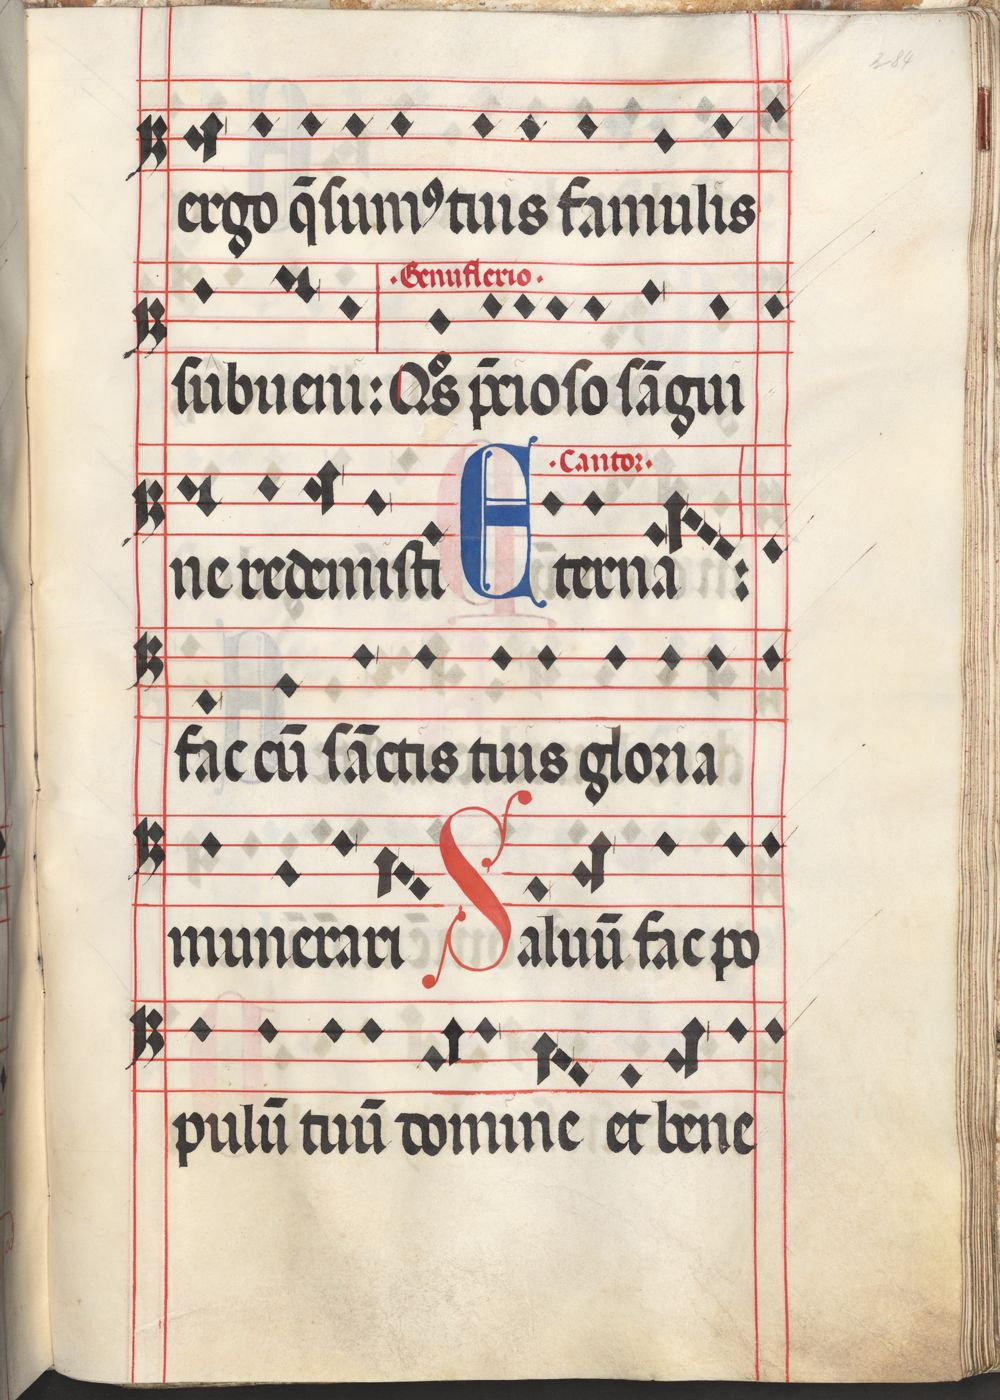 284
ergo q̄sumꝯ tuis famulis
·Genuflexio·
subueni: Qͦs p̄cioso sāgui
·Cantor·
ne redemisti Eternā:
fac cū sāctis tuis gloria
munerari Saluū fac po
pulū tuū domine et bene